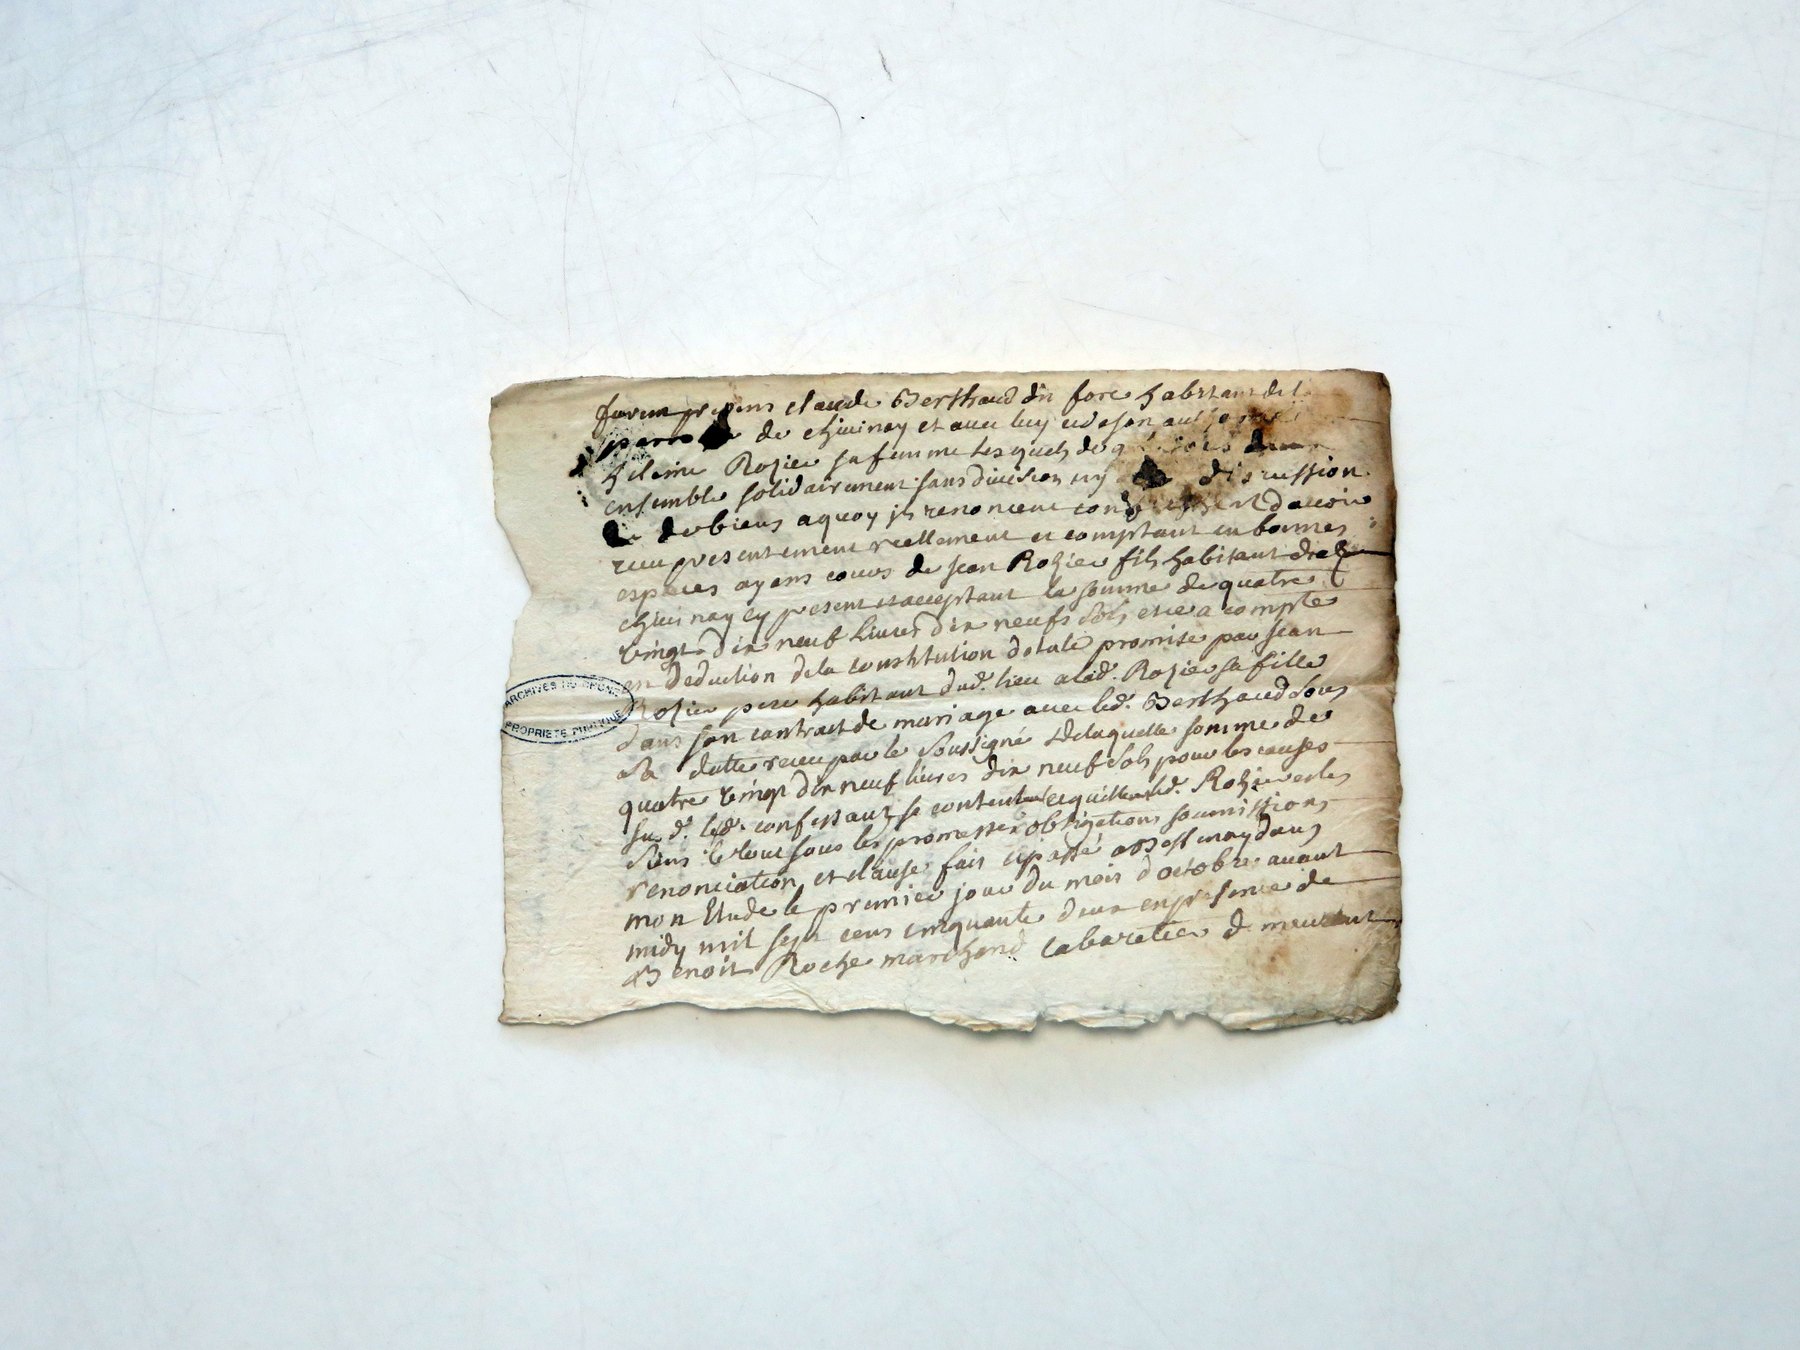 furent presens claude Berthaud dit fore habitant de l
de chiuinay et auec luy et de son
heleine Rozier sa femme lesquels de
ensemble solidairement sans diuision ny discussion
de biens a quoy ils renoncent confessent dauoir
receu presentement reellement et comptant en bonnes
especes ayans cours de Jean Rozier fils habitant
chiuinay cy present et acceptant la somme de quatre
vingt dix neuf liures dix neufs sols et ce a compte
en deduction de la constitution dotale promise par Jean
Rozier pere habitant dud. lieu a lad. Rozier sa fille
dans son contract de mariage auec led. Berthaud sous
sa datte receu par le soussigné de laquelle somme de
quatre vingt dix neuf liures dix neuf sols pour les causes
sud. led. confessants se contentent et quittent led. Rozier et les
siens le tout sous les promesses obligations soumissions
renonciation et clause fait et passé a Bessenay dans
mon Etude le premier jour du mois d'octobre auant
midy mil sept cens cinquante deux en presence de
Benoit Roche marchand cabaretier
ARCHIVES DU RHONE
PROPRIETE PUBLIQUE